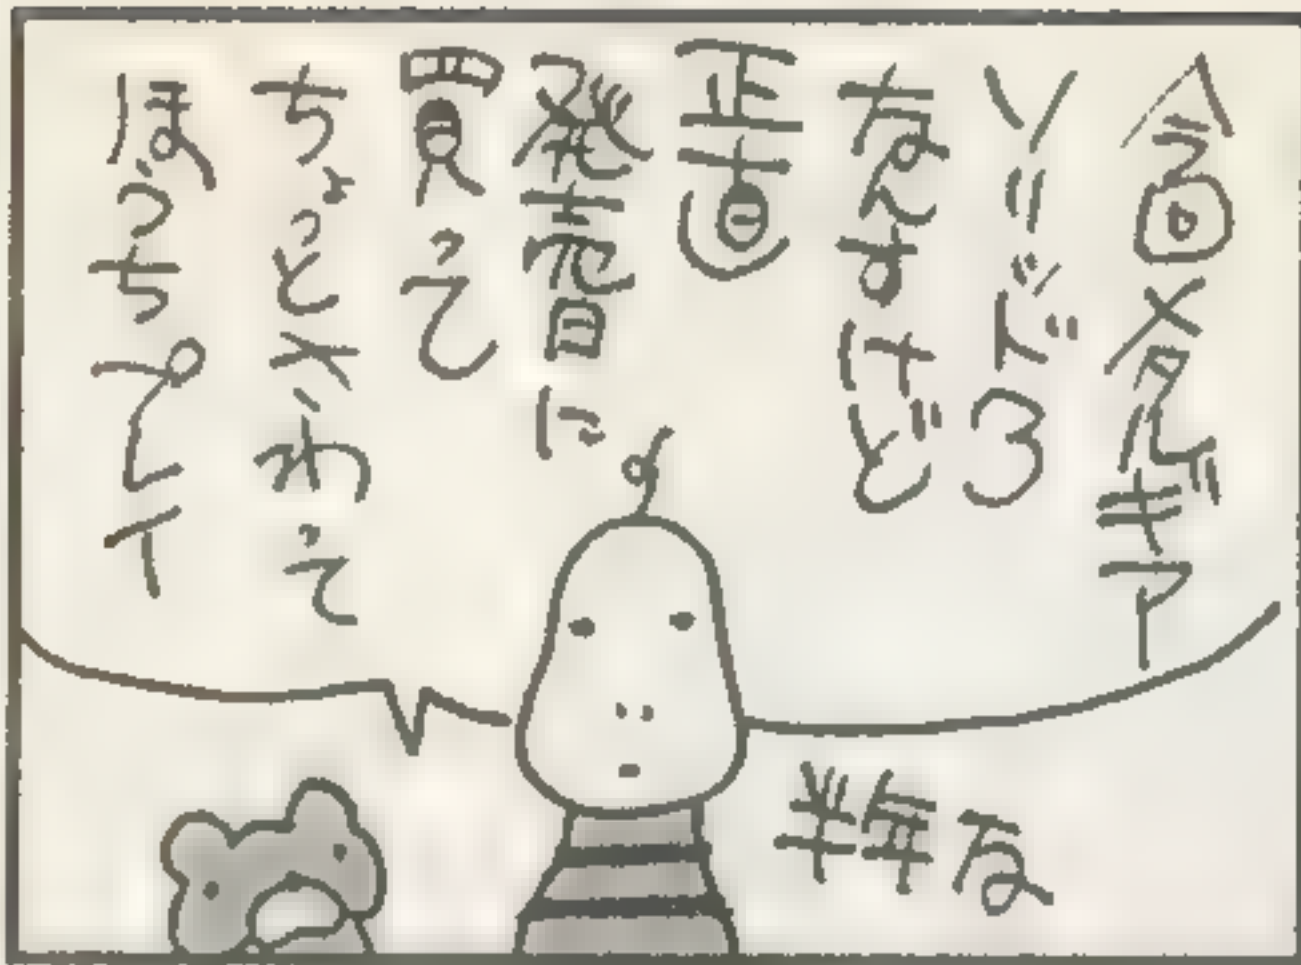 今回メタルギア
ソリッド3
なんすけど
正直
発売日に
買って
ちょっとさわって
ほっちらかしー
半年な